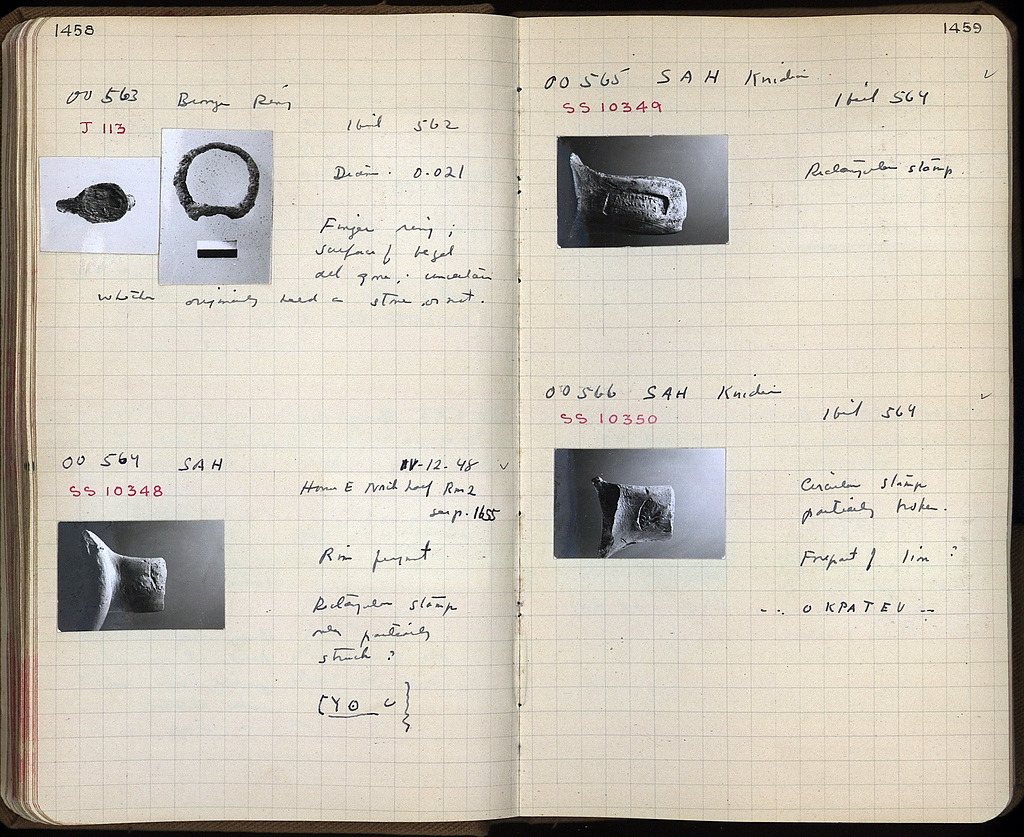 1458
OO 563 Bronze Ring
J 113
Ibid 562
Diam. 0.021
Finger ring;
surface of bezel
all gone; uncertain
whether originally held a stone or not.
OO 564 SAH
IV-12-48 ✓
SS 10348
House E North half Rm 2
serp. 1655
Rim fragment
Rectangular stamp
only partially
struck?
1459
OO 565 SAH Knidian
✓
SS 10349
Ibid 564
Rectangular stamp.
OO 566 SAH Knidian
✓
SS 10350
Ibid 564
Circular stamp
partially broken.
Forepart of lion?
-.. OKPATEU --